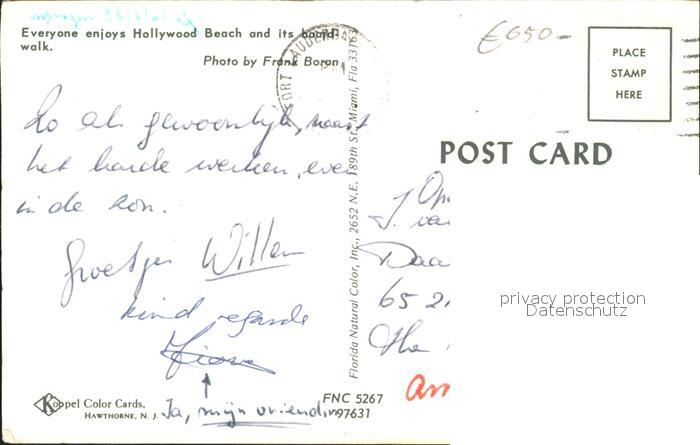 Everyone enjoys Hollywood Beach and its board-
walk.
Photo by Frank Boran
FORT LAUDERDA
€650-
PLACE
STAMP
HERE
POST CARD
Zo als gewoonlijk, naast
het harde werken, even
in de zon.
Groetjes Willem
kind regards
Ja, mijn vriendin
Florida Natural Color, Inc., 2652 N.E. 189th St., Miami, Fla 33163
J.
Daa
65 21
privacy protection
Datenschutz
Koppel Color Cards,
HAWTHORNE, N. J.
FNC 5267
97631